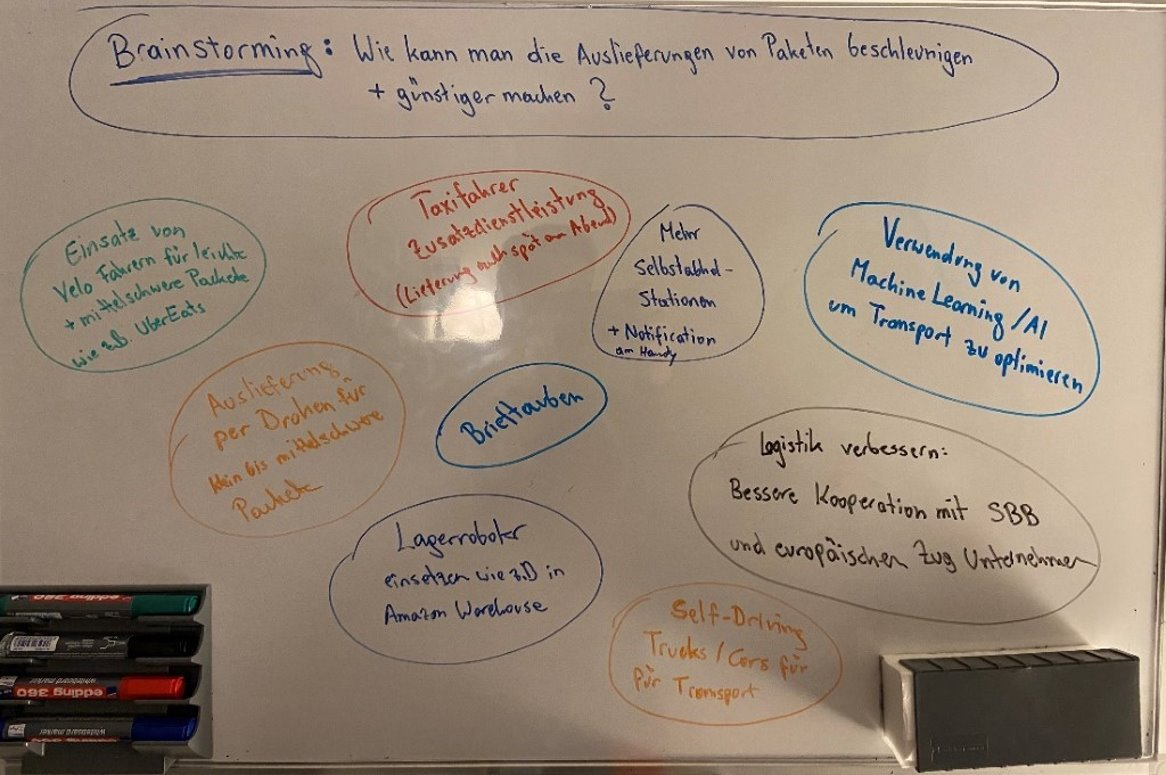 Brainstorming: Wie kann man die Auslieferungen von Paketen beschleunigen
+ günstiger machen ?
Einsatz von
Velo Fahrern für leichte
+ mittelschwere Packete
wie z.B. UberEats
Taxifahrer
Zusatzdienstleistung
(Lieferung auch spät am Abend)
Mehr
Selbstabhol-
Stationen
+ Notification
am Handy
Verwendung von
Machine Learning / AI
um Transport zu optimieren
Auslieferung
per Drohen für
klein bis mittelschwere
Packete
Brieftauben
Logistik verbessern:
Bessere Kooperation mit SBB
und europäischen Zug Unternehmen
Lagerroboter
einsetzen wie z.B in
Amazon Warehouse
Self-Driving
Trucks / Cars für
für Transport
edding 360
edding 360
whiteboard marker
whiteboard marker